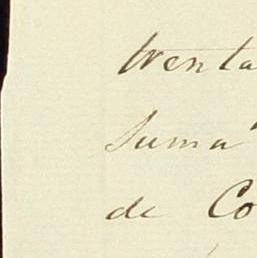 trenta
Suma
de Co